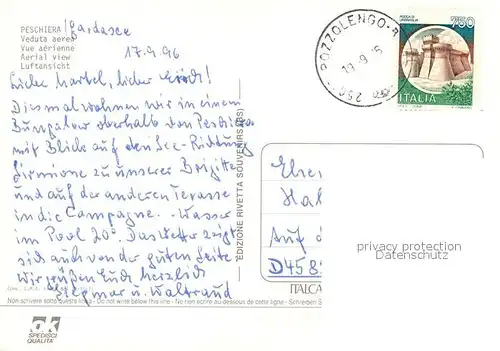 PESCHIERA /Gardasee
Veduta aerea
Vue aérienne
Aerial view
Luftansicht
17.9.96
Liebe Martel, lieber Gerd!
Diesmal wohnen wir in einem
Bungalow oberhalb von Peschiera
mit Blick auf den See - Richtung
Sirmione zu unserer Brigitte
und auf der anderen Terasse
in die Campagne. Wasser
im Pool 20°. Das Wetter zeigt
sich auch von der guten Seite
Wir grüßen Euch herzlich
Siegmar u. Waltraud
Non scrivere sotto questa linea - Do not write below this line - Ne rien écrire au dessous de cette ligne - Schreiben S
SPEDISCI
QUALITÀ
EDIZIONE RIVETTA SOUVENIRS
POZZOLENGO
19.9.
750
ITALIA
Auf
D458
ITALCA
privacy protection
Datenschutz